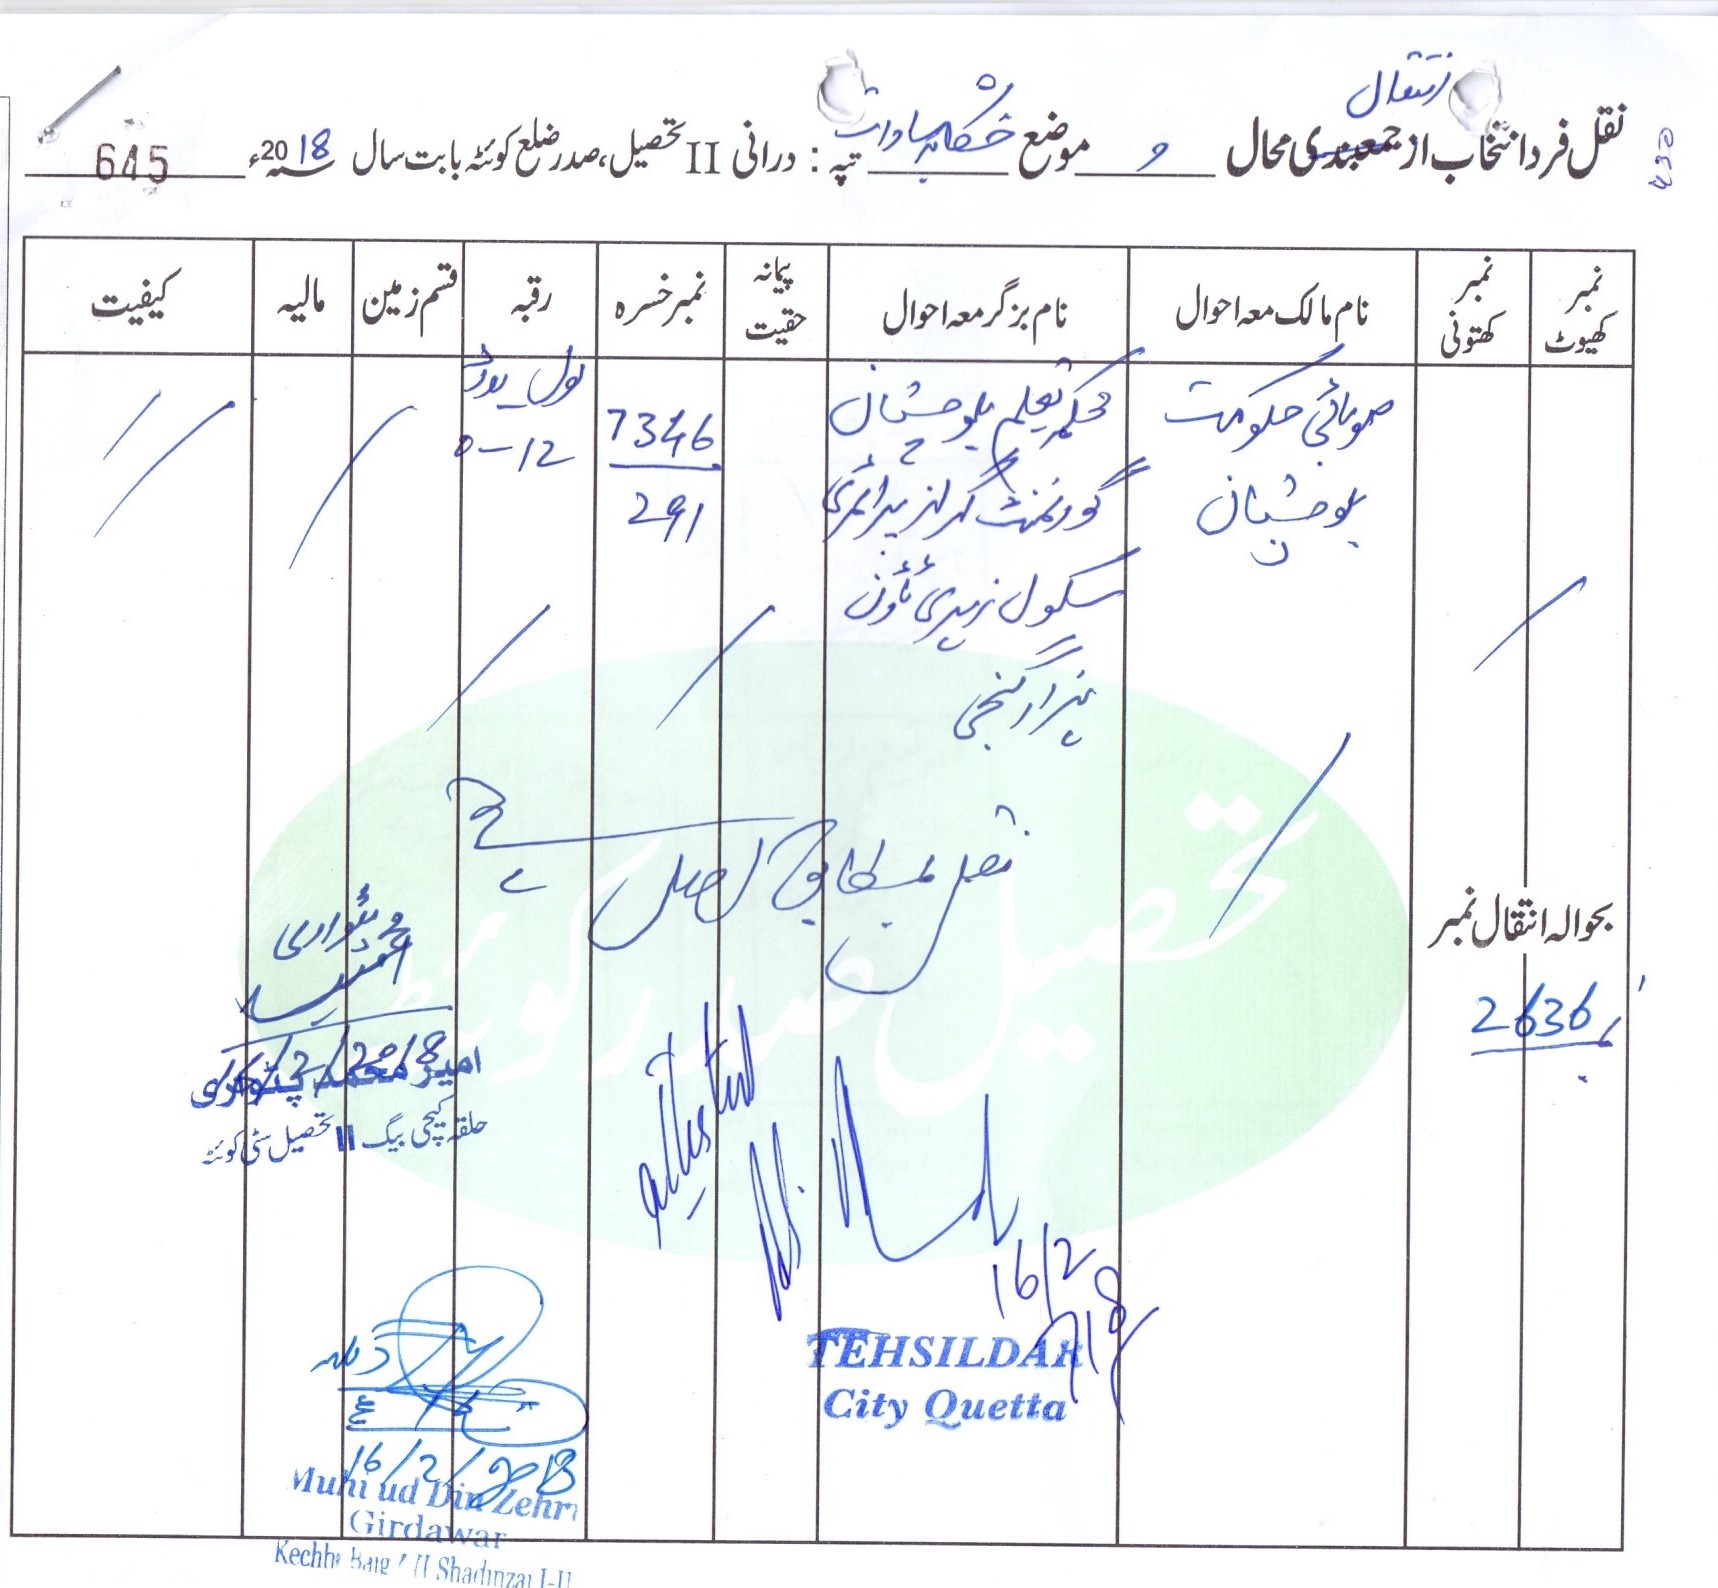 انتقال
نقل فرد انتخاب از جمعبندی محال و موضع خشکابہ سادات تپہ : درانی II تحصیل، صدر ضلع کوئٹہ بابت سال 2018ء 645
نمبر کھیوٹ
نمبر کھتونی
نام مالک معہ احوال
نام بزگر معہ احوال
پیمانہ حقیت
نمبر خسرہ
رقبہ
قسم زمین
مالیہ
کیفیت
صوبائی حکومت
بلوچستان
محکمہ تعلیم بلوچستان
گورنمنٹ گرلز پرائمری
سکول زہری ٹاؤن
ہزار گنجی
7346
291
0-12
نقل بمطابق اصل ہے
بحوالہ انتقال نمبر
2636
پٹواری
16/2/2018
امیر محمد پٹواری
حلقہ کیچی بیگ II تحصیل سٹی کوئٹہ
Attested
16/2
TEHSILDAR
City Quetta
16/2/2018
Muhi ud Din Zehri
Girdawar
Kechhi Baig / II Shadinzai I-II
تحصیل صدر کوئٹہ